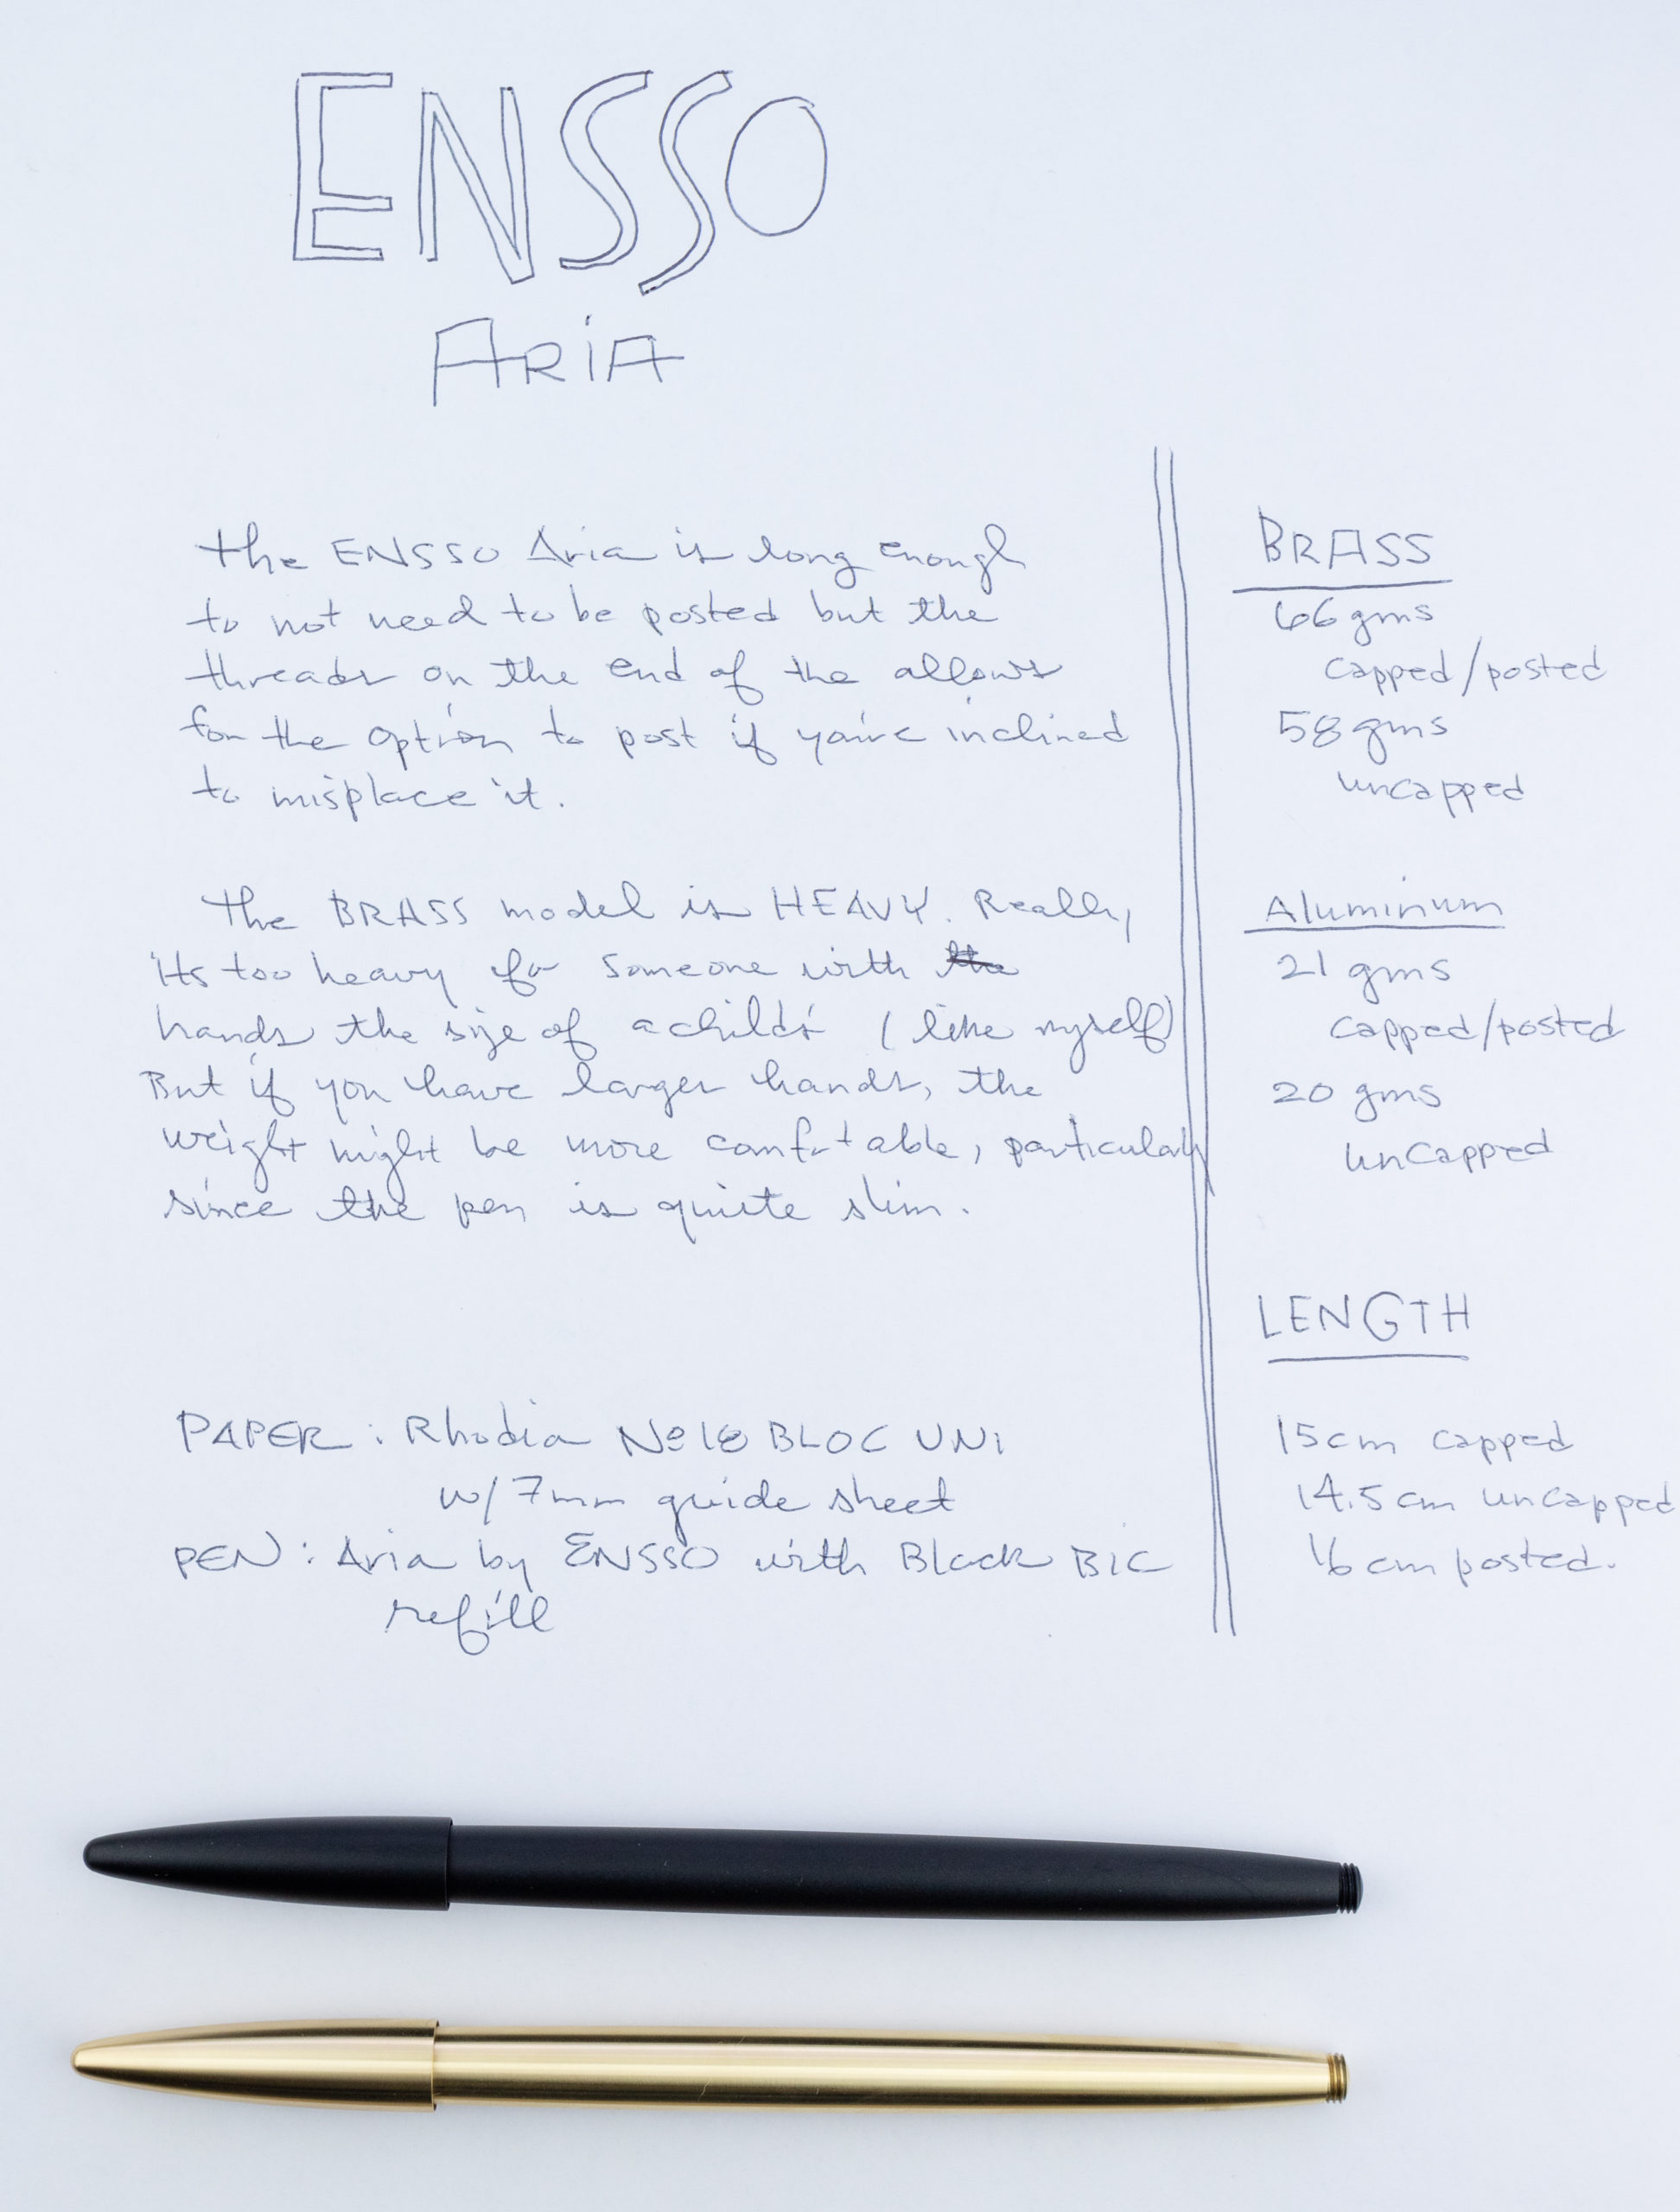 ENSSO
ARiA
the ENSSO Aria is long enough
to not need to be posted but the
threads on the end of the allows
for the option to post if you're inclined
to misplace it.
The BRASS model is HEAVY. Really,
its too heavy for someone with the
hands the size of a child's (like myself)
But if you have larger hands, the
weight might be more comfortable, particularly
since the pen is quite slim.
PAPER: Rhodia No 18 BLOC UNi
w/ 7mm guide sheet
PEN: Aria by ENSSO with Black BIC
refill
BRASS
66 gms
capped/posted
58 gms
uncapped
Aluminium
21 gms
capped/posted
20 gms
uncapped
LENGTH
15cm capped
14.5cm uncapped
16 cm posted.